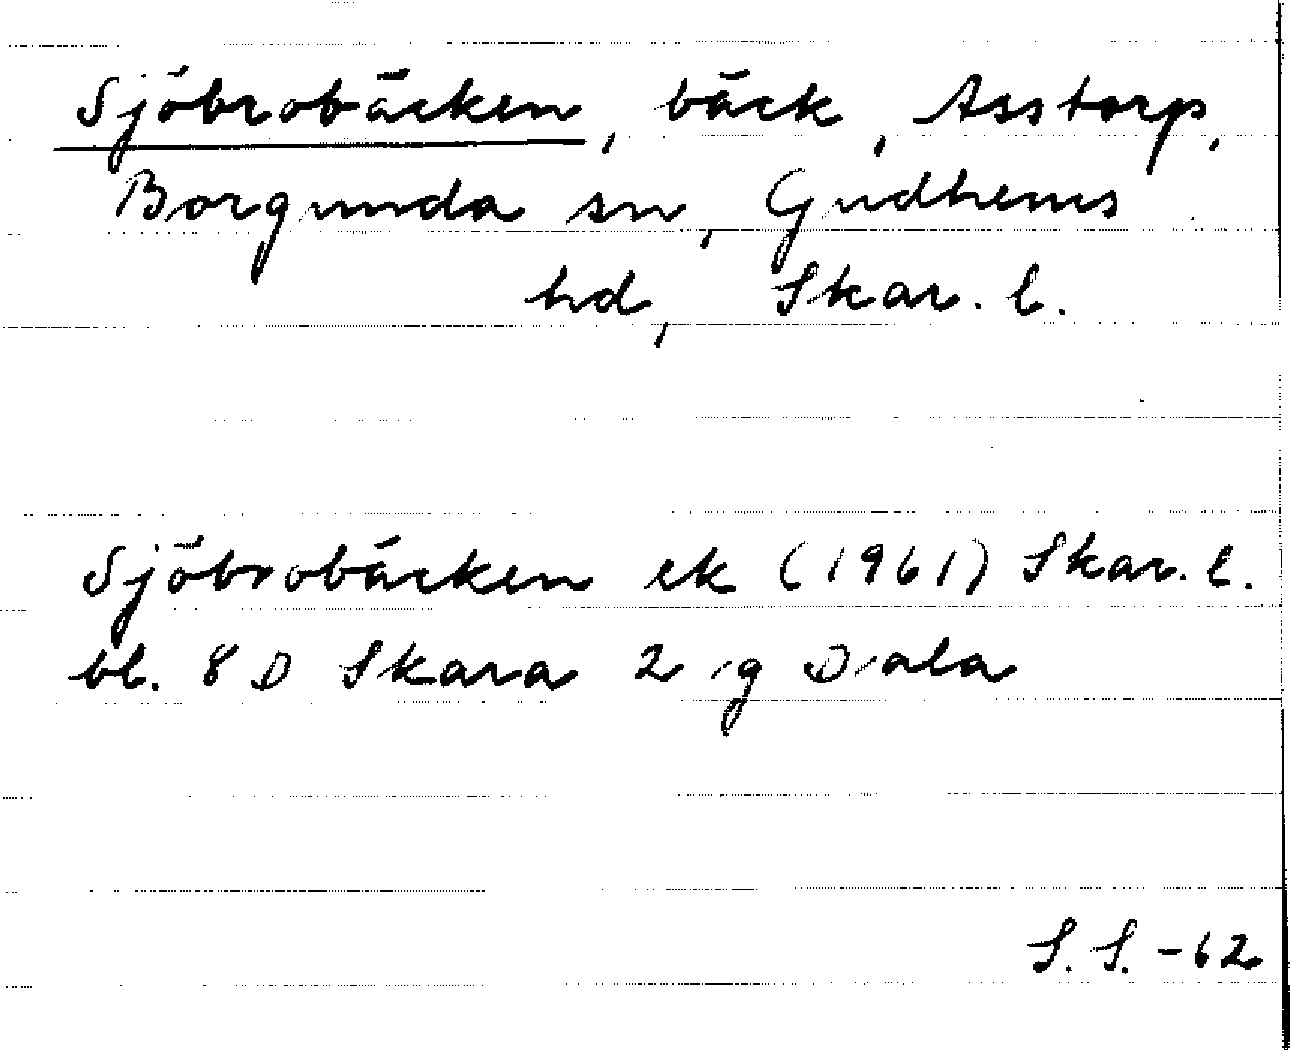 Sjöbrobäcken, bäck, Asstorp,
Borgunda sn, Gudhems
hd, Skar. l.
Sjöbrobäcken ek (1961) Skar. l.
bl. 8 D Skara 2 g Dala
S. S. -62